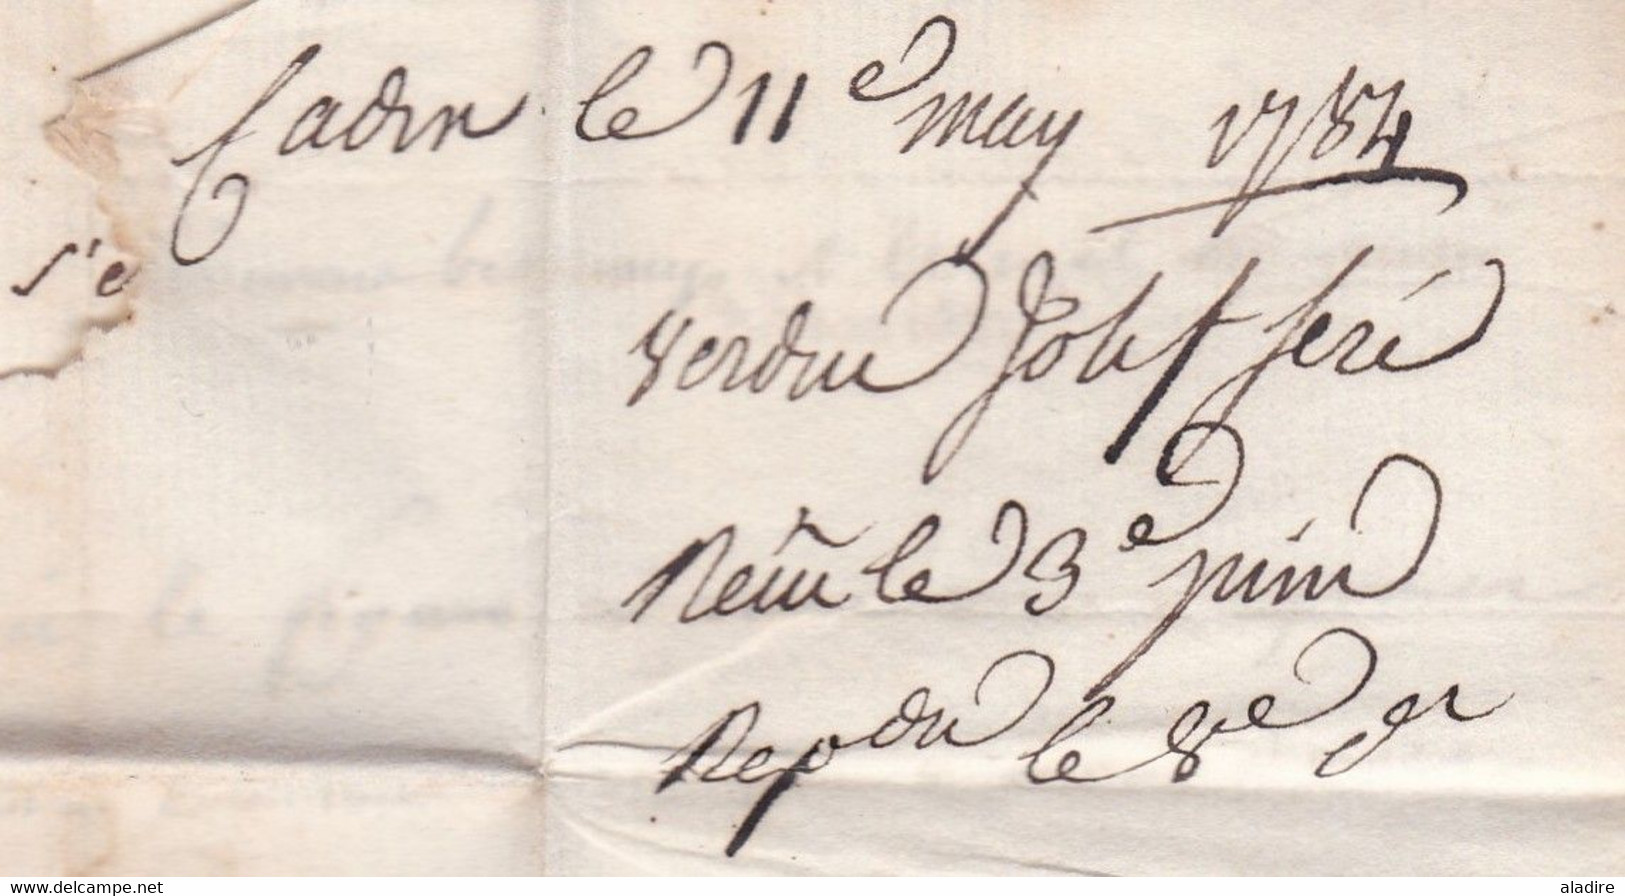 Cadix le 11e may 1784
s'e
Verdun Jolif seré
Receu le 3e juin
Repdu le 8e dr
delcampe.net
aladire